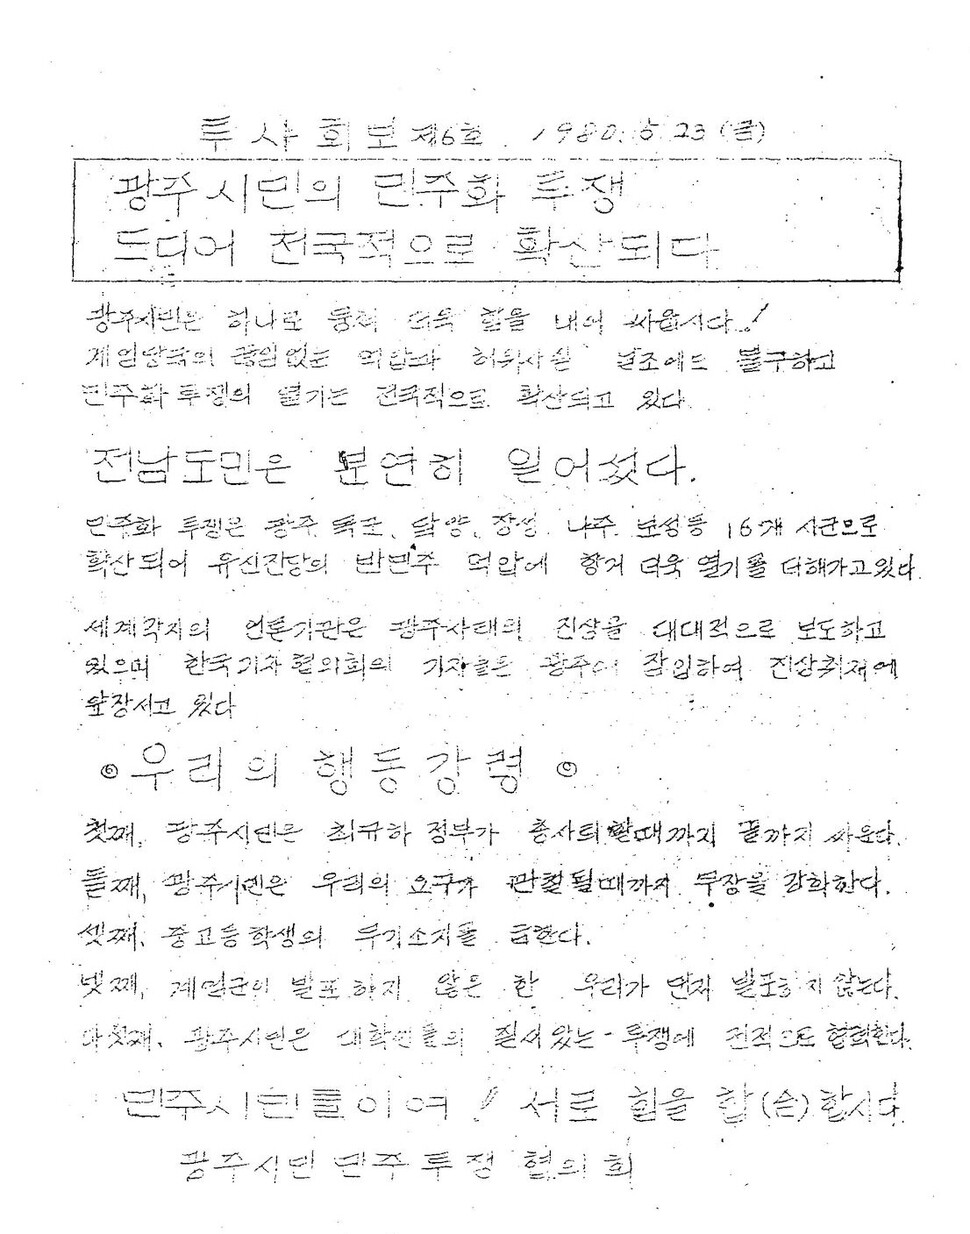 투사회보 제6호 1980. 5. 23 (금)
광주시민의 민주화 투쟁
드디어 전국적으로 확산되다
광주시민은 하나로 뭉쳐 더욱 힘을 내어 싸웁시다!
계엄당국의 끊임없는 억압과 허위사실 날조에도 불구하고
민주화 투쟁의 열기는 전국적으로 확산되고 있다.
전남도민은 분연히 일어섰다.
민주화 투쟁은 광주, 목포, 담양, 장성, 나주, 보성등 16개 시군으로
확산되어 유신잔당의 반민주 억압에 항거 더욱 열기를 더해가고있다.
세계각지의 언론기관은 광주사태의 진상을 대대적으로 보도하고
있으며 한국기자협의회의 기자들은 광주에 잠입하여 진상취재에
앞장서고 있다
◎ 우리의 행동강령 ◎
첫째, 광주시민은 최규하 정부가 총사퇴할때까지 끝까지 싸운다.
둘째, 광주시민은 우리의 요구가 관철될때까지 무장을 강화한다.
셋째, 중고등학생의 무기소지를 금한다.
넷째, 계엄군이 발포하지 않은 한 우리가 먼저 발포하지 않는다.
다섯째, 광주시민은 대학인들의 질서있는 투쟁에 전적으로 협력한다.
민주시민들이여! 서로 힘을 합(合)합시다.
광주시민 민주투쟁 협의회